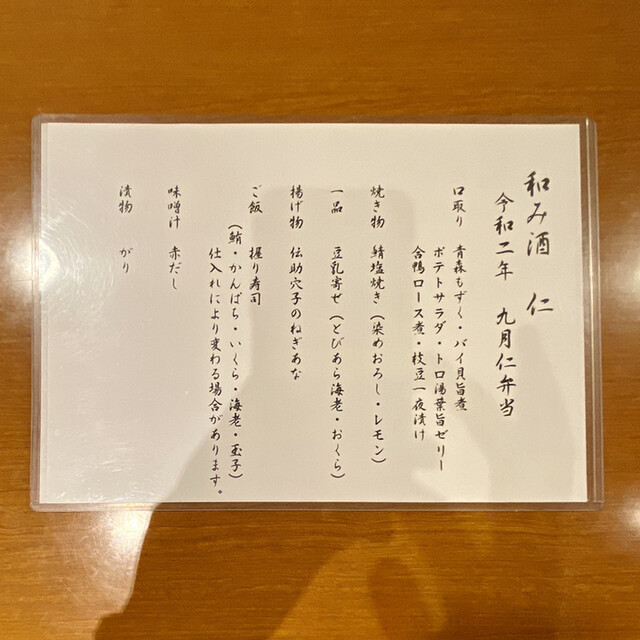 和み酒　仁
令和二年　九月仁弁当
口取り　青森もずく・バイ貝旨煮
ポテトサラダ・トロ湯葉旨ゼリー
合鴨ロース煮・枝豆一夜漬け
焼き物　鯖塩焼き（染めおろし・レモン）
一品　豆乳寄せ（とびあら海老・おくら）
揚げ物　伝助穴子のねぎあな
ご飯　握り寿司
（鮪・かんぱち・いくら・海老・玉子）
仕入れにより変わる場合があります。
味噌汁　赤だし
漬物　がり